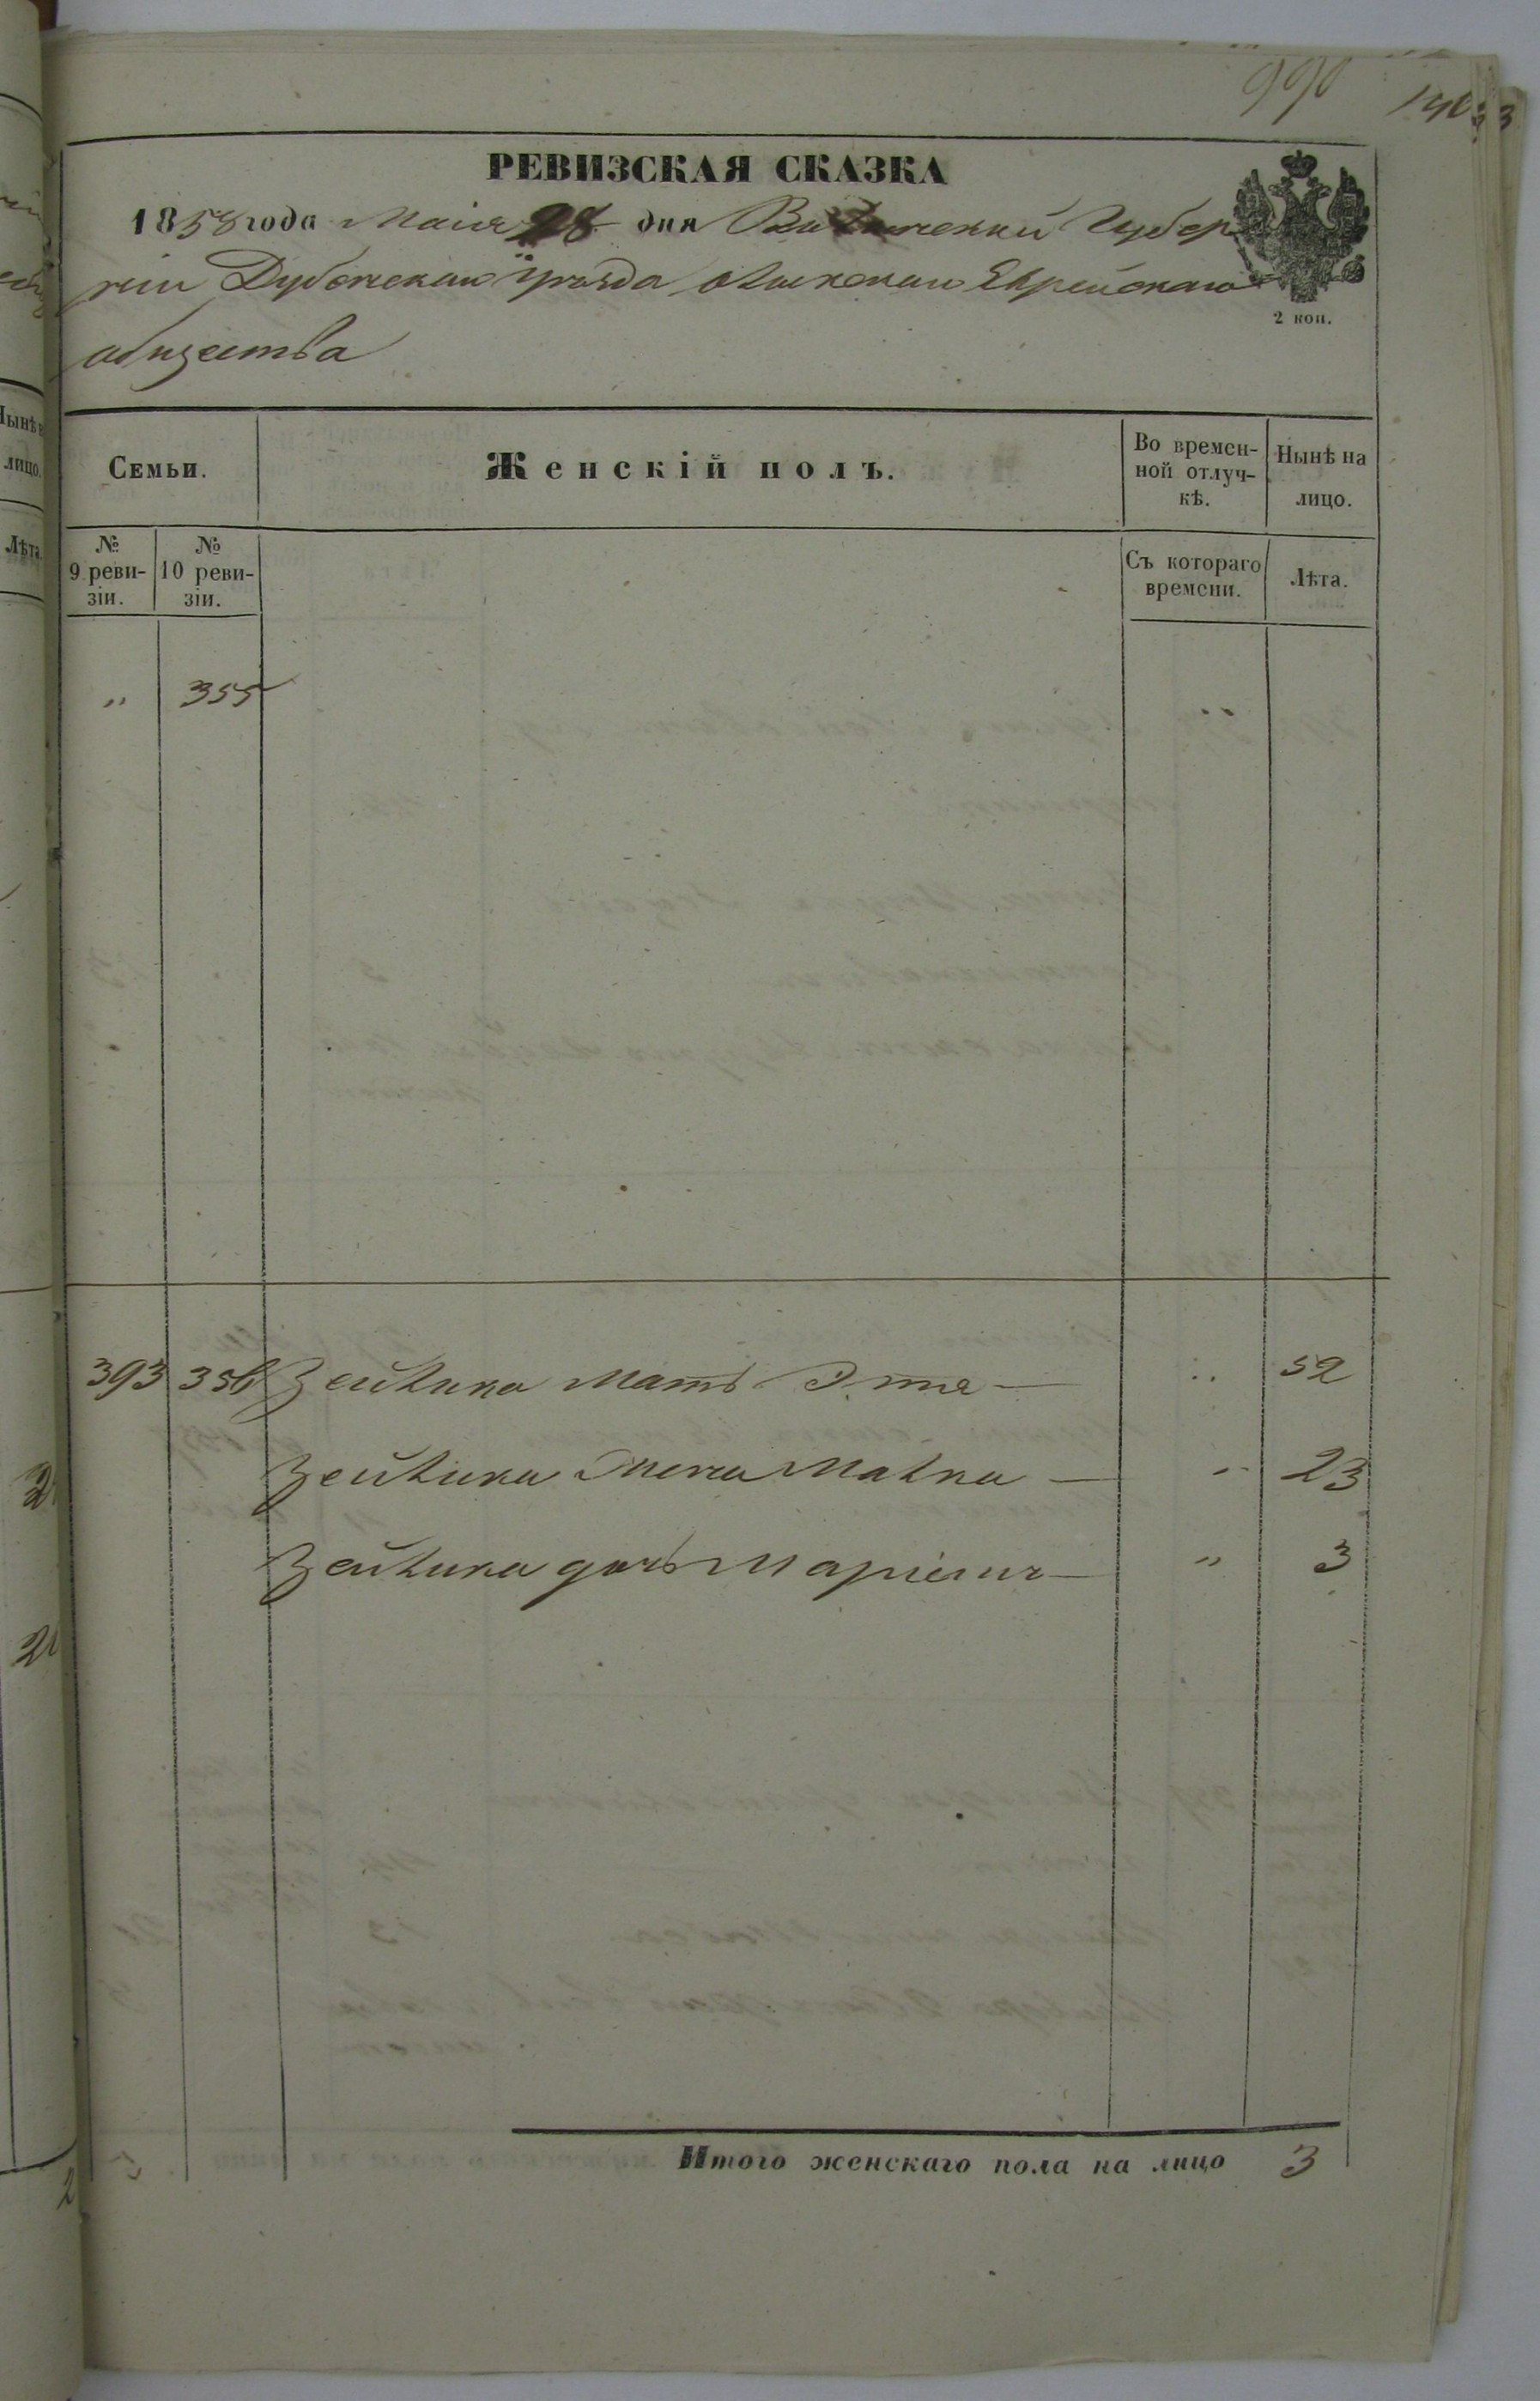 990
РЕВИЗСКАЯ СКАЗКА
1858 года Маія 28 дня Волынской Губер
ніи Дубенскаго Уѣзда Олыкскаго Еврейскаго
общества
2 коп.
Семьи.
Женскій полъ.
Во времен-
ной отлуч-
кѣ.
Нынѣ на
лицо.
№
9 реви-
зіи.
№
10 реви-
зіи.
Съ котораго
времени.
Лѣта.
" 355
393 356 Зейлика Мать Этя — " 52
Зейлика Жена Малка — " 23
Зейлика дочь Маріемъ — " 3
Итого женскаго пола на лицо 3